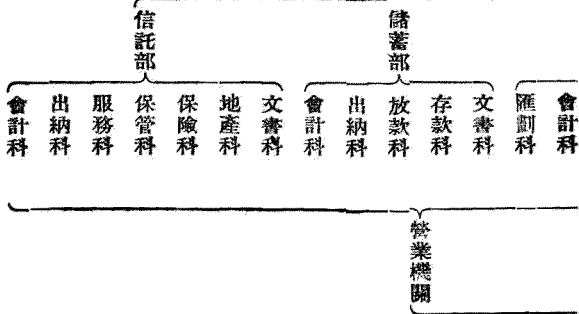 儲蓄部
信託部
會計科
匯劃科
文書科
存款科
放款科
出納科
會計科
文書科
地產科
保險科
保管科
服務科
出納科
會計科
營業機關